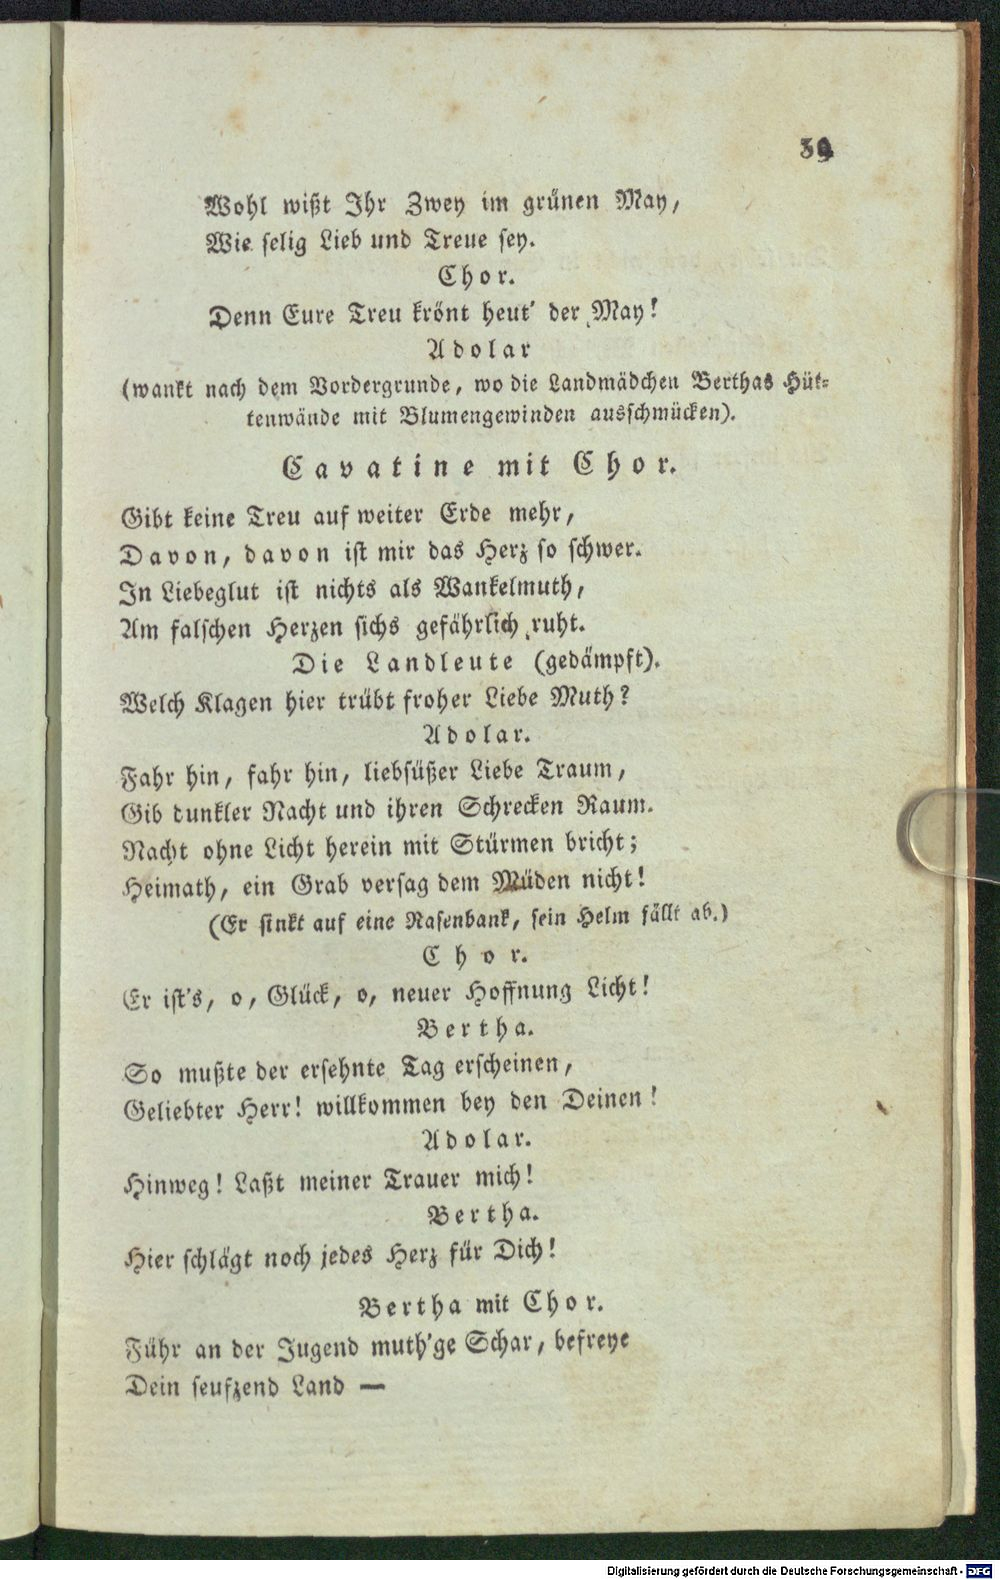 39
Wohl wißt Ihr Zwey im grünen May,
Wie selig Lieb und Treue sey.
Chor.
Denn Eure Treu krönt heut' der May!
Adolar
(wankt nach dem Vordergrunde, wo die Landmädchen Berthas Hüt-
tenwände mit Blumengewinden ausschmücken).
Cavatine mit Chor.
Gibt keine Treu auf weiter Erde mehr,
Davon, davon ist mir das Herz so schwer.
In Liebeglut ist nichts als Wankelmuth,
Am falschen Herzen sichs gefährlich ruht.
Die Landleute (gedämpft).
Welch Klagen hier trübt froher Liebe Muth?
Adolar.
Fahr hin, fahr hin, liebsüßer Liebe Traum,
Gib dunkler Nacht und ihren Schrecken Raum.
Nacht ohne Licht herein mit Stürmen bricht;
Heimath, ein Grab versag dem Müden nicht!
(Er sinkt auf eine Rasenbank, sein Helm fällt ab.)
Chor.
Er ist's, o, Glück, o, neuer Hoffnung Licht!
Bertha.
So mußte der ersehnte Tag erscheinen,
Geliebter Herr! willkommen bey den Deinen!
Adolar.
Hinweg! Laßt meiner Trauer mich!
Bertha.
Hier schlägt noch jedes Herz für Dich!
Bertha mit Chor.
Führ an der Jugend muth'ge Schar, befreye
Dein seufzend Land —
Digitalisierung gefördert durch die Deutsche Forschungsgemeinschaft - DFG